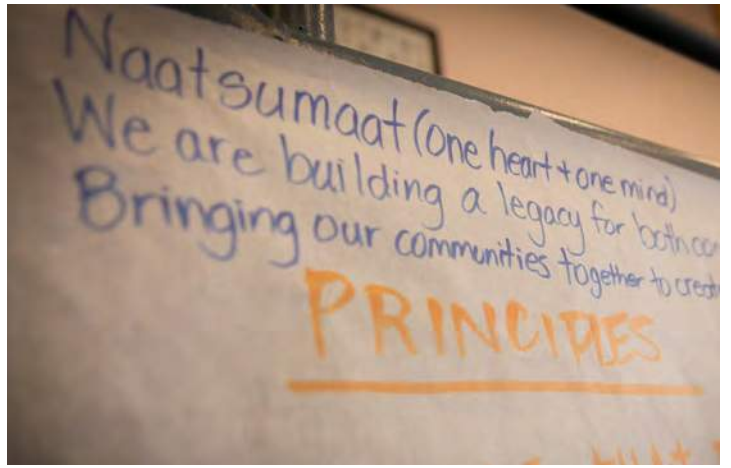 Naatsumaat (one heart + one mind)
We are building a legacy for both
Bringing our communities together to
PRINCIPLES
THAT